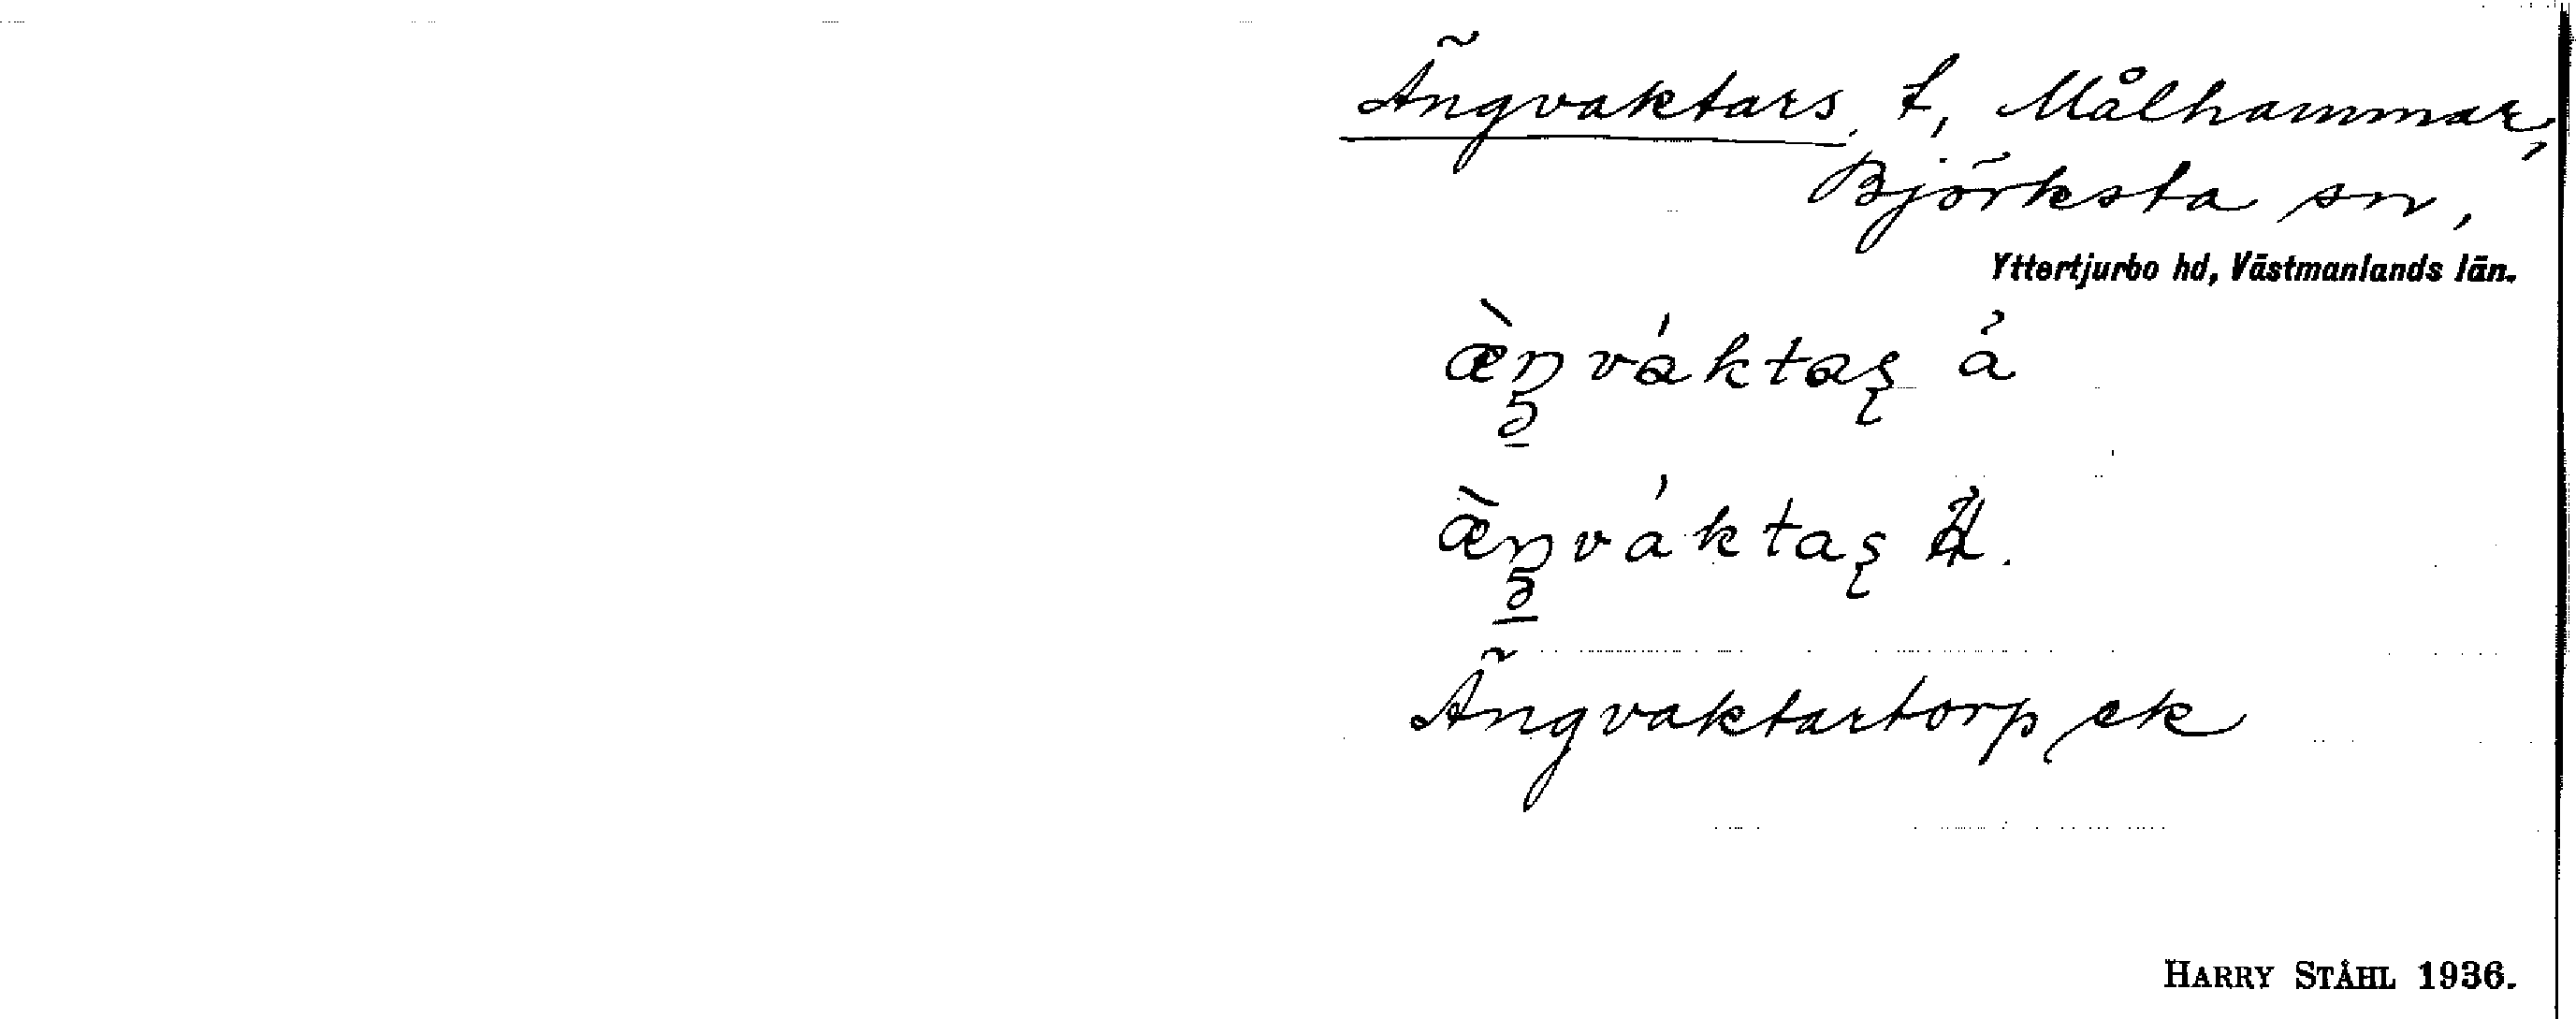 Ängvaktars, t, Målhammar,
Björksta sn,
Yttertjurbo hd, Västmanlands län.
Ängvaktartorp ek
HARRY STÅHL 1936.